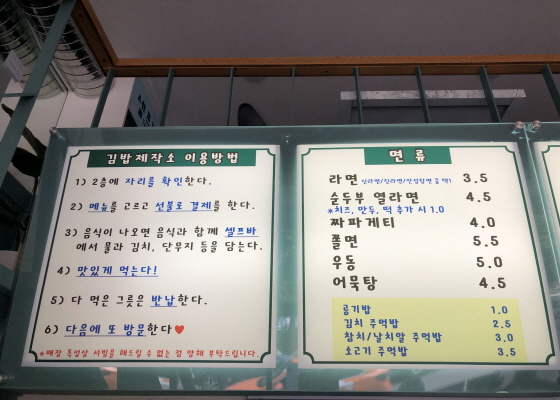 김밥제작소 이용방법
1) 2층에 자리를 확인한다.
2) 메뉴를 고르고 선불로 결제를 한다.
3) 음식이 나오면 음식과 함께 셀프바
에서 물과 김치, 단무지 등을 담는다.
4) 맛있게 먹는다!
5) 다 먹은 그릇은 반납한다.
6) 다음에 또 방문한다♥
*매장 특성상 서빙을 해드릴 수 없는 점 양해 부탁드립니다.
면 류
라면 신라면/진라면/안성탕면 중 택1 3.5
순두부 열라면 4.5
*치즈, 만두, 떡 추가 시 1.0
짜파게티 4.0
쫄면 5.5
우동 5.0
어묵탕 4.5
공기밥 1.0
김치 주먹밥 2.5
참치/날치알 주먹밥 3.0
소고기 주먹밥 3.5